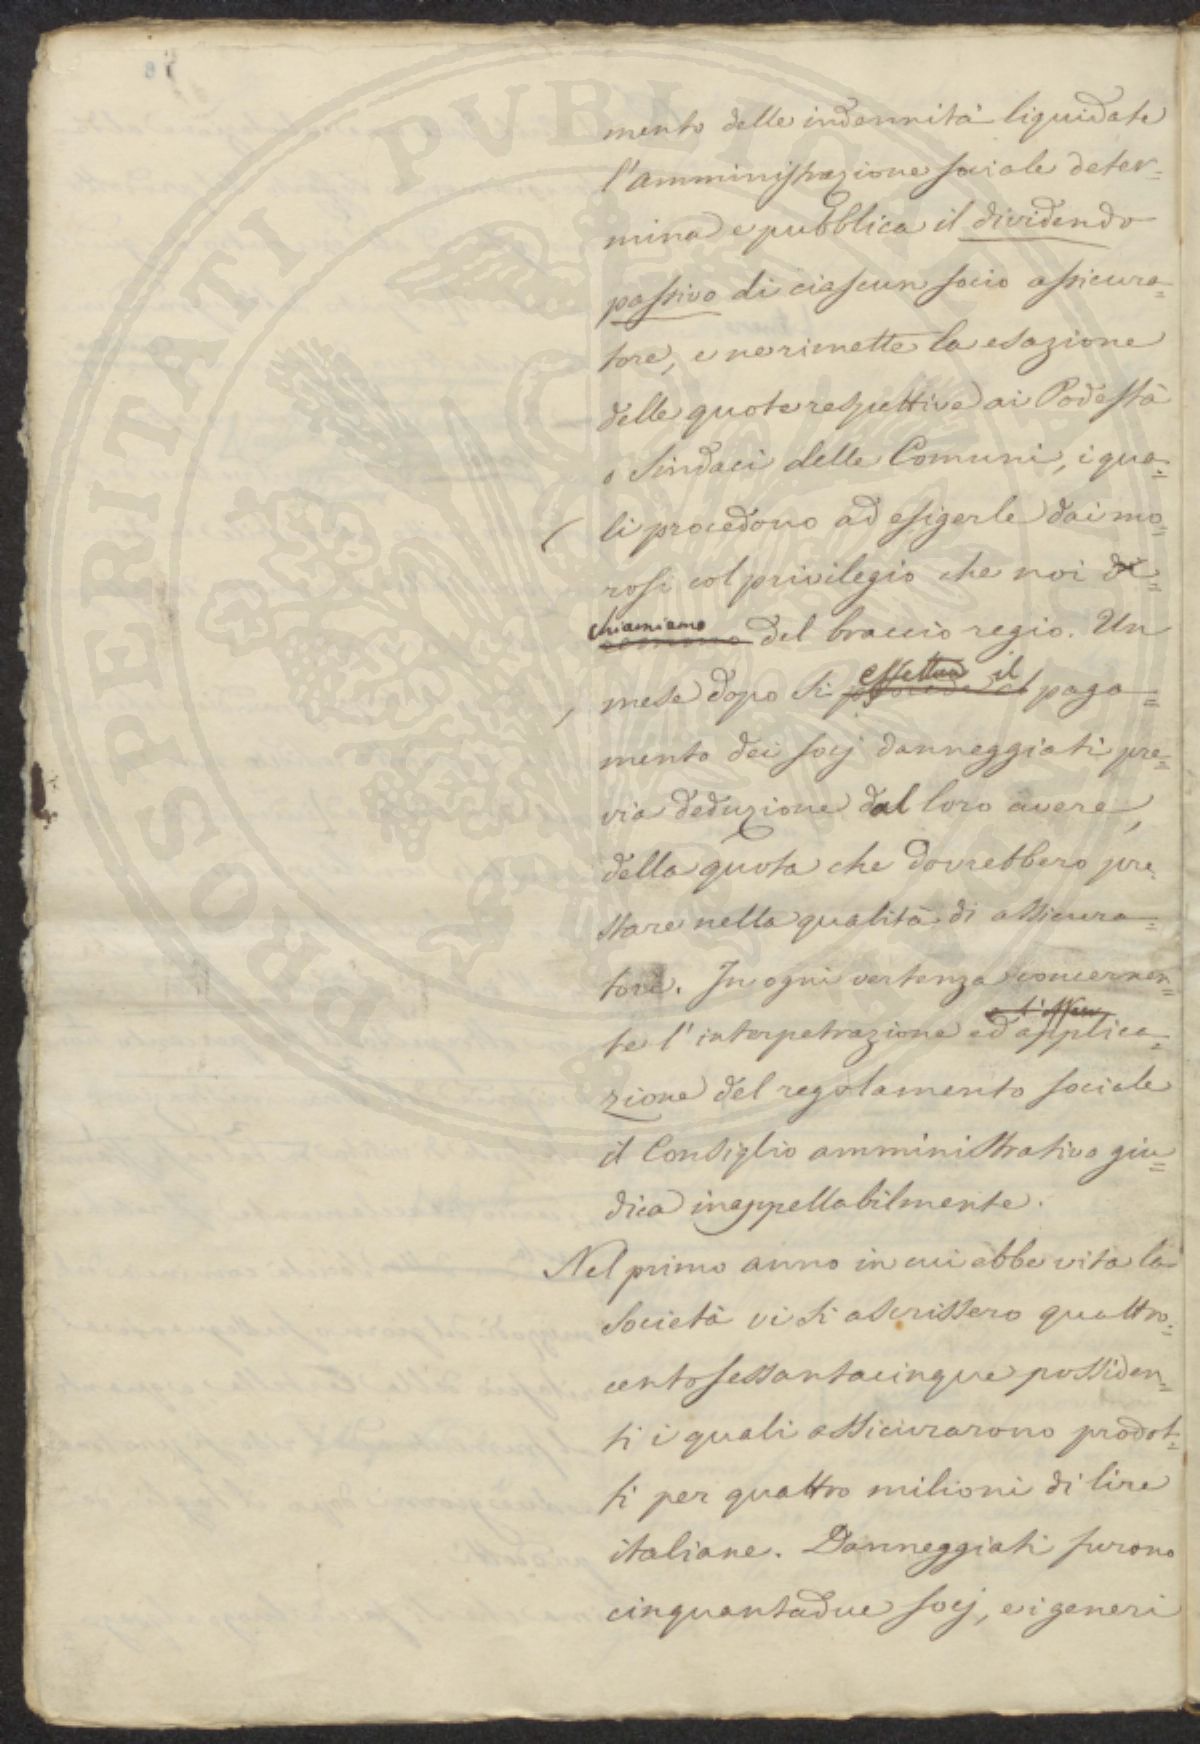 PROSPERITATI PUBLICAE
mento delle indennità liquidate
l'amministrazione sociale deter=
mina e pubblica il dividendo
passivo di ciascun socio assicura=
tore, e ne rimette la esazione
delle quote respettive ai Podestà
o Sindaci delle Comuni, i qua=
li procedono ad esigerle dai mo=
rosi col privilegio che noi
chiamiamo del braccio regio. Un
mese dopo si effettua il paga=
mento dei socj danneggiati pre=
via deduzione dal loro avere,
della quota che dovrebbero pre=
stare nella qualità di assicura=
tore. In ogni vertenza concernen=
te l'interpetrazione ed applica=
zione del regolamento sociale
il Consiglio amministrativo giu=
dica inappellabilmente.
Nel primo anno in cui ebbe vita la
Società vi si ascrissero quattro=
centosessantacinque possiden=
ti i quali assicurarono prodot=
ti per quattro milioni di lire
italiane. Danneggiati furono
cinquantadue socj, e i generi